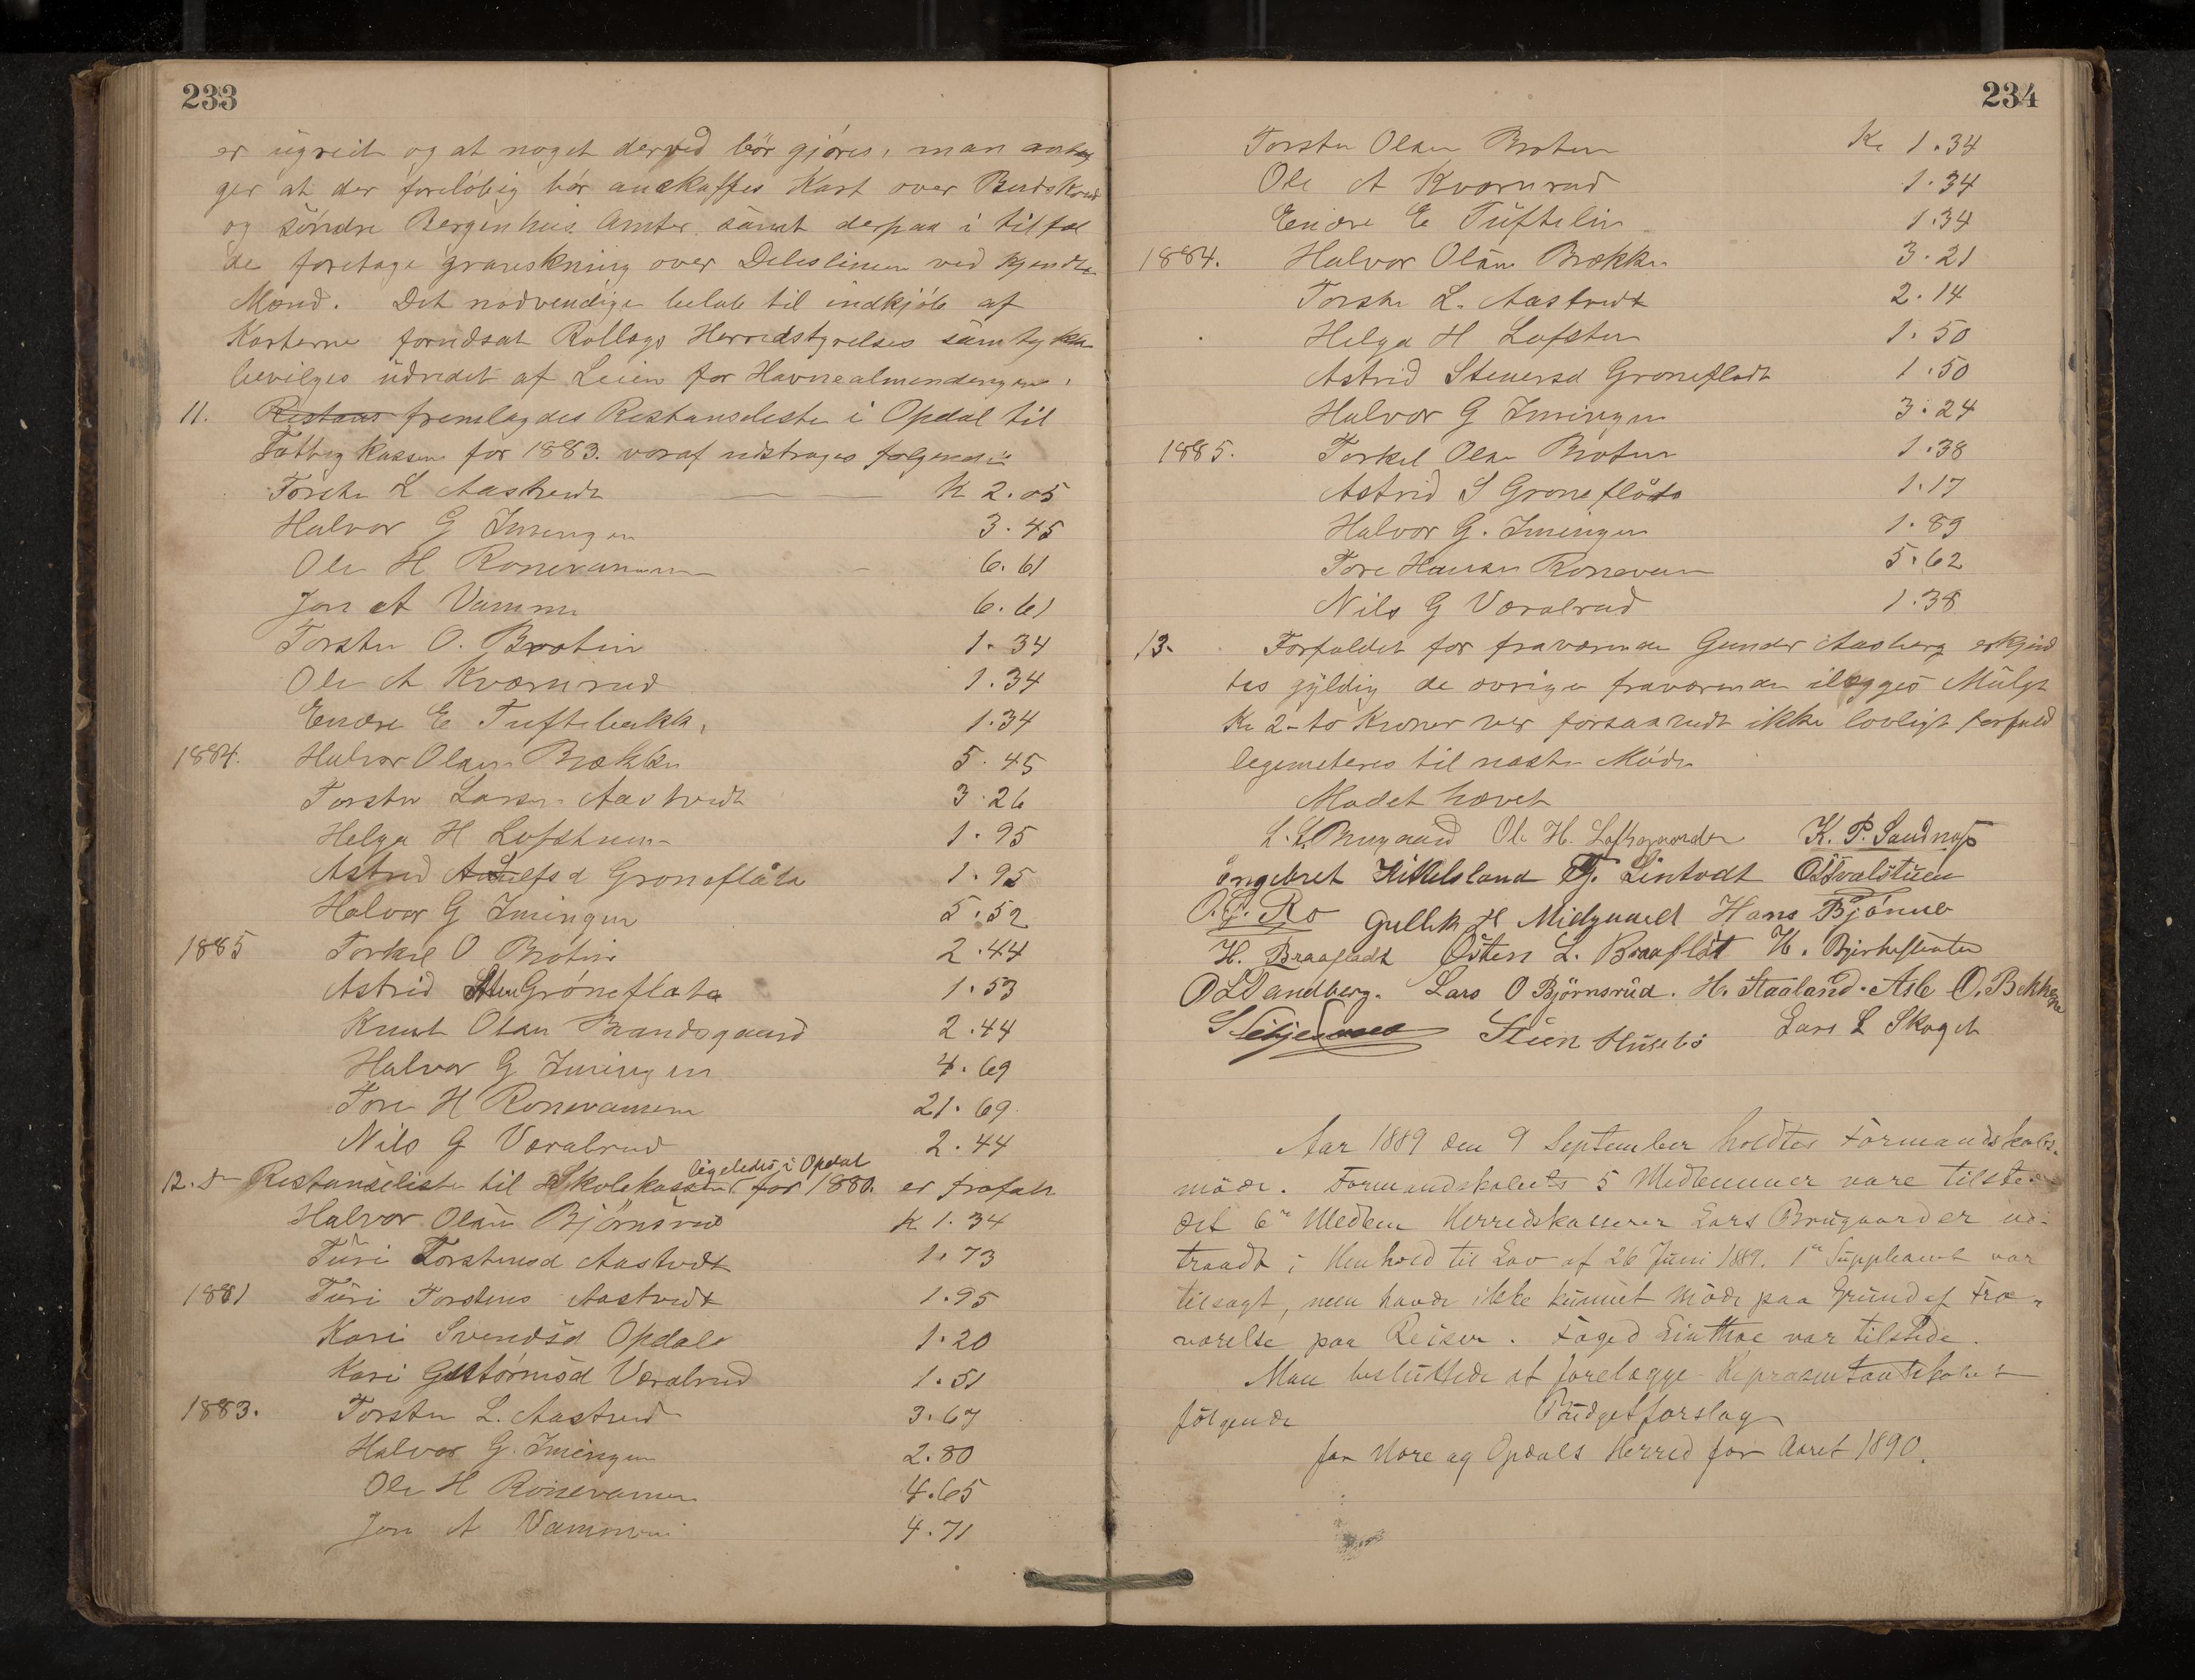 233
er ugreit og at noget derved bör gjöres, man anta
ger at der forelöbig bör anskaffes Kart over Buskerud
og söndre Bergenhus Amter samt derpaa i tilfæl
de foretage granskning over Deleslinien ved kjendte
Mænd. Det nödvendige belöb til indkjöb af
Karterne forudsat Rollags Herredstyrelses samtykke
bevilges udredet af Leien for Havnealmendingene.
11. Restans fremlagdes Restanseliste i Opdal til
Fattigkassen for 1883. voraf udstryges følgende
Torsten L Aastvedt K 2.05
Halvor G Imingen 3.45
Ole H Ronevammen 6.61
Jon A Vammen 6.61
Torsten O. Braatin 1.34
Ole A Kværnrud 1.34
Endre E Tuftebakk. 1.34
1884. Halvor Olsen Brække 5.45
Torsten Larsen Aastvedt 3.26
Helga H Lofsthuen 1.95
Astrid Groneflåta 1.95
Halvor G Imingen 5.52
1885 Torkel O Brotin 2.44
Astrid Sten Gröneflata 1.53
Knut Olsen Brandsgaard 2.44
Halvor G Imingen 4.69
Tore H Ronevammen 21.69
Nils G Væralrud 2.44
ligeledes i Opdal
12. Restanseliste til Skolekassen for 1880. er frafaldt
Halvor Olsen Björnsrud K 1.34
Turi Torstensd Aastvedt 1.73
1881 Turi Torstens Aastvedt 1.95
Kari Svendsd Opdal 1.20
Kari Guttormsd Væralrud 1.51
1883. Torsten L. Aastved 3.67
Halvor G. Imingen 2.80
Ole H Ronevammen 4.65
Jon A Vammen 4.71
234
Torsten Olsen Broten Kr 1.34
Ole A Kværnrud 1.34
Endre E Tuftelin 1.34
1884. Halvor Olsen Brække 3.21
Torsten L. Aastvedt 2.14
Helga H Lofsthu 1.50
Astrid Stenersd Groneflodt 1.50
Halvor G Imingen 3.24
1885. Torkel Olsen Broten 1.38
Astrid S Groneflåta 1.17
Halvor G. Imingen 1.89
Tore Hansen Ronevam 5.62
Nils G Væralrud 1.38
13. Forfaldet for fraværende Gunder Aasberg erkjend
tes gyldig de øvrige fraværende ilægges Mulgt
Kr 2 - to Kroner hver forsaavidt ikke lovligt forfald
legemiteres til næste Möde
Mødet hævet
L. L. Brugaard Ole H. Loftsgaarden K. P. Sandnæs
Ingebret Kittelsland T. Lintvedt
O. G. Ro Gullek H Midgaard Hans Bjönne
H. Braafladt Østen L. Braaflat H. Bjerkeflaten
O L Sandberg. Lars O Björnsrud. H. Staaland. Asle O. Bekken
Stein Huseb Lars L Skoget
Aar 1889 den 9 September holdtes Formandskabs-
möde. Formandskabets 5 Medlemmer vare tilstede
det 6te Medlem Herredskasserer Lars Brugaard er ud-
traadt i Henhold til Lov af 26 Juni 1889. 1ste Suppleant var
tilsagt, men havde ikke kunnet möde paa Grund af Fra-
værelse paa Reiser. Foged Linthoe var tilstede.
Man besluttede at forelægge Repræsentantskabet
fölgende Budgetforslag
for Nore og Opdals Herred for Aaret 1890.